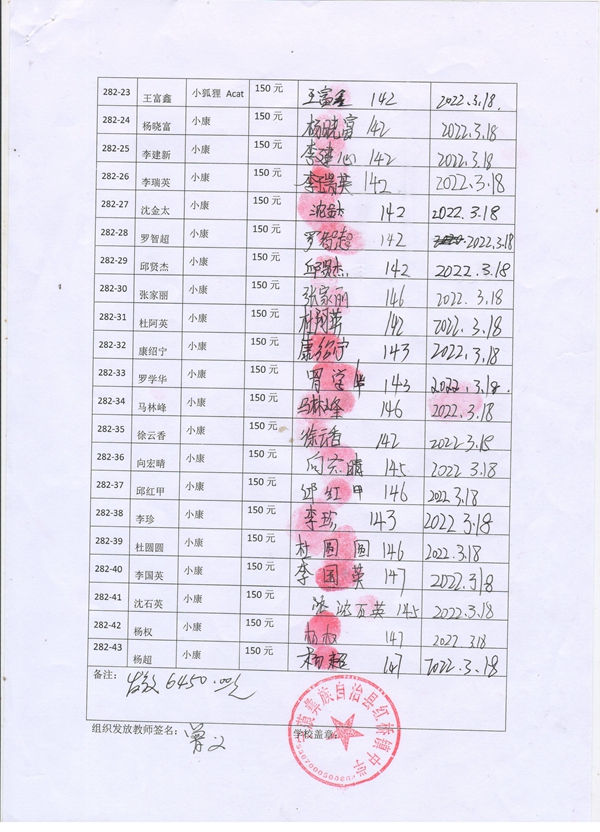 282-23 王富鑫 小狐狸 Acat 150 元 王富鑫 142 2022.3.18.
282-24 杨晓富 小康 150 元 杨晓富 142 2022.3.18.
282-25 李建新 小康 150 元 李建心 142 2022.3.18
282-26 李瑞英 小康 150 元 李瑞英 142 2022.3.18
282-27 沈金太 小康 150 元 沈金太 142 2022.3.18
282-28 罗智超 小康 150 元 罗智超 142 2022.3.18
282-29 邱贤杰 小康 150 元 邱贤杰 142 2022.3.18
282-30 张家丽 小康 150 元 张家丽 146 2022.3.18
282-31 杜阿英 小康 150 元 杜阿英 142 2022.3.18
282-32 康绍宁 小康 150 元 康绍宁 143 2022.3.18
282-33 罗学华 小康 150 元 学华 143 2022.3.18.
282-34 马林峰 小康 150 元 马林峰 146 2022.3.18
282-35 徐云香 小康 150 元 徐云香 142 2022.3.18
282-36 向宏晴 小康 150 元 向宏晴 145 2022.3.18
282-37 邱红甲 小康 150 元 邱红甲 146 2022.3.18
282-38 李珍 小康 150 元 李珍 143 2022.3.18
282-39 杜圆圆 小康 150 元 杜圆圆 146 2022.3.18
282-40 李国英 小康 150 元 李国英 147 2022.3.18
282-41 沈石英 小康 150 元 沈石英 145 2022.3.18
282-42 杨权 小康 150 元 杨权 147 2022 3.18
282-43 杨超 小康 150 元 杨超 147 2022.3.18
备注： 6450.00元
组织发放教师签名： 学校盖章：
蒗彝族自治县红桥镇中学